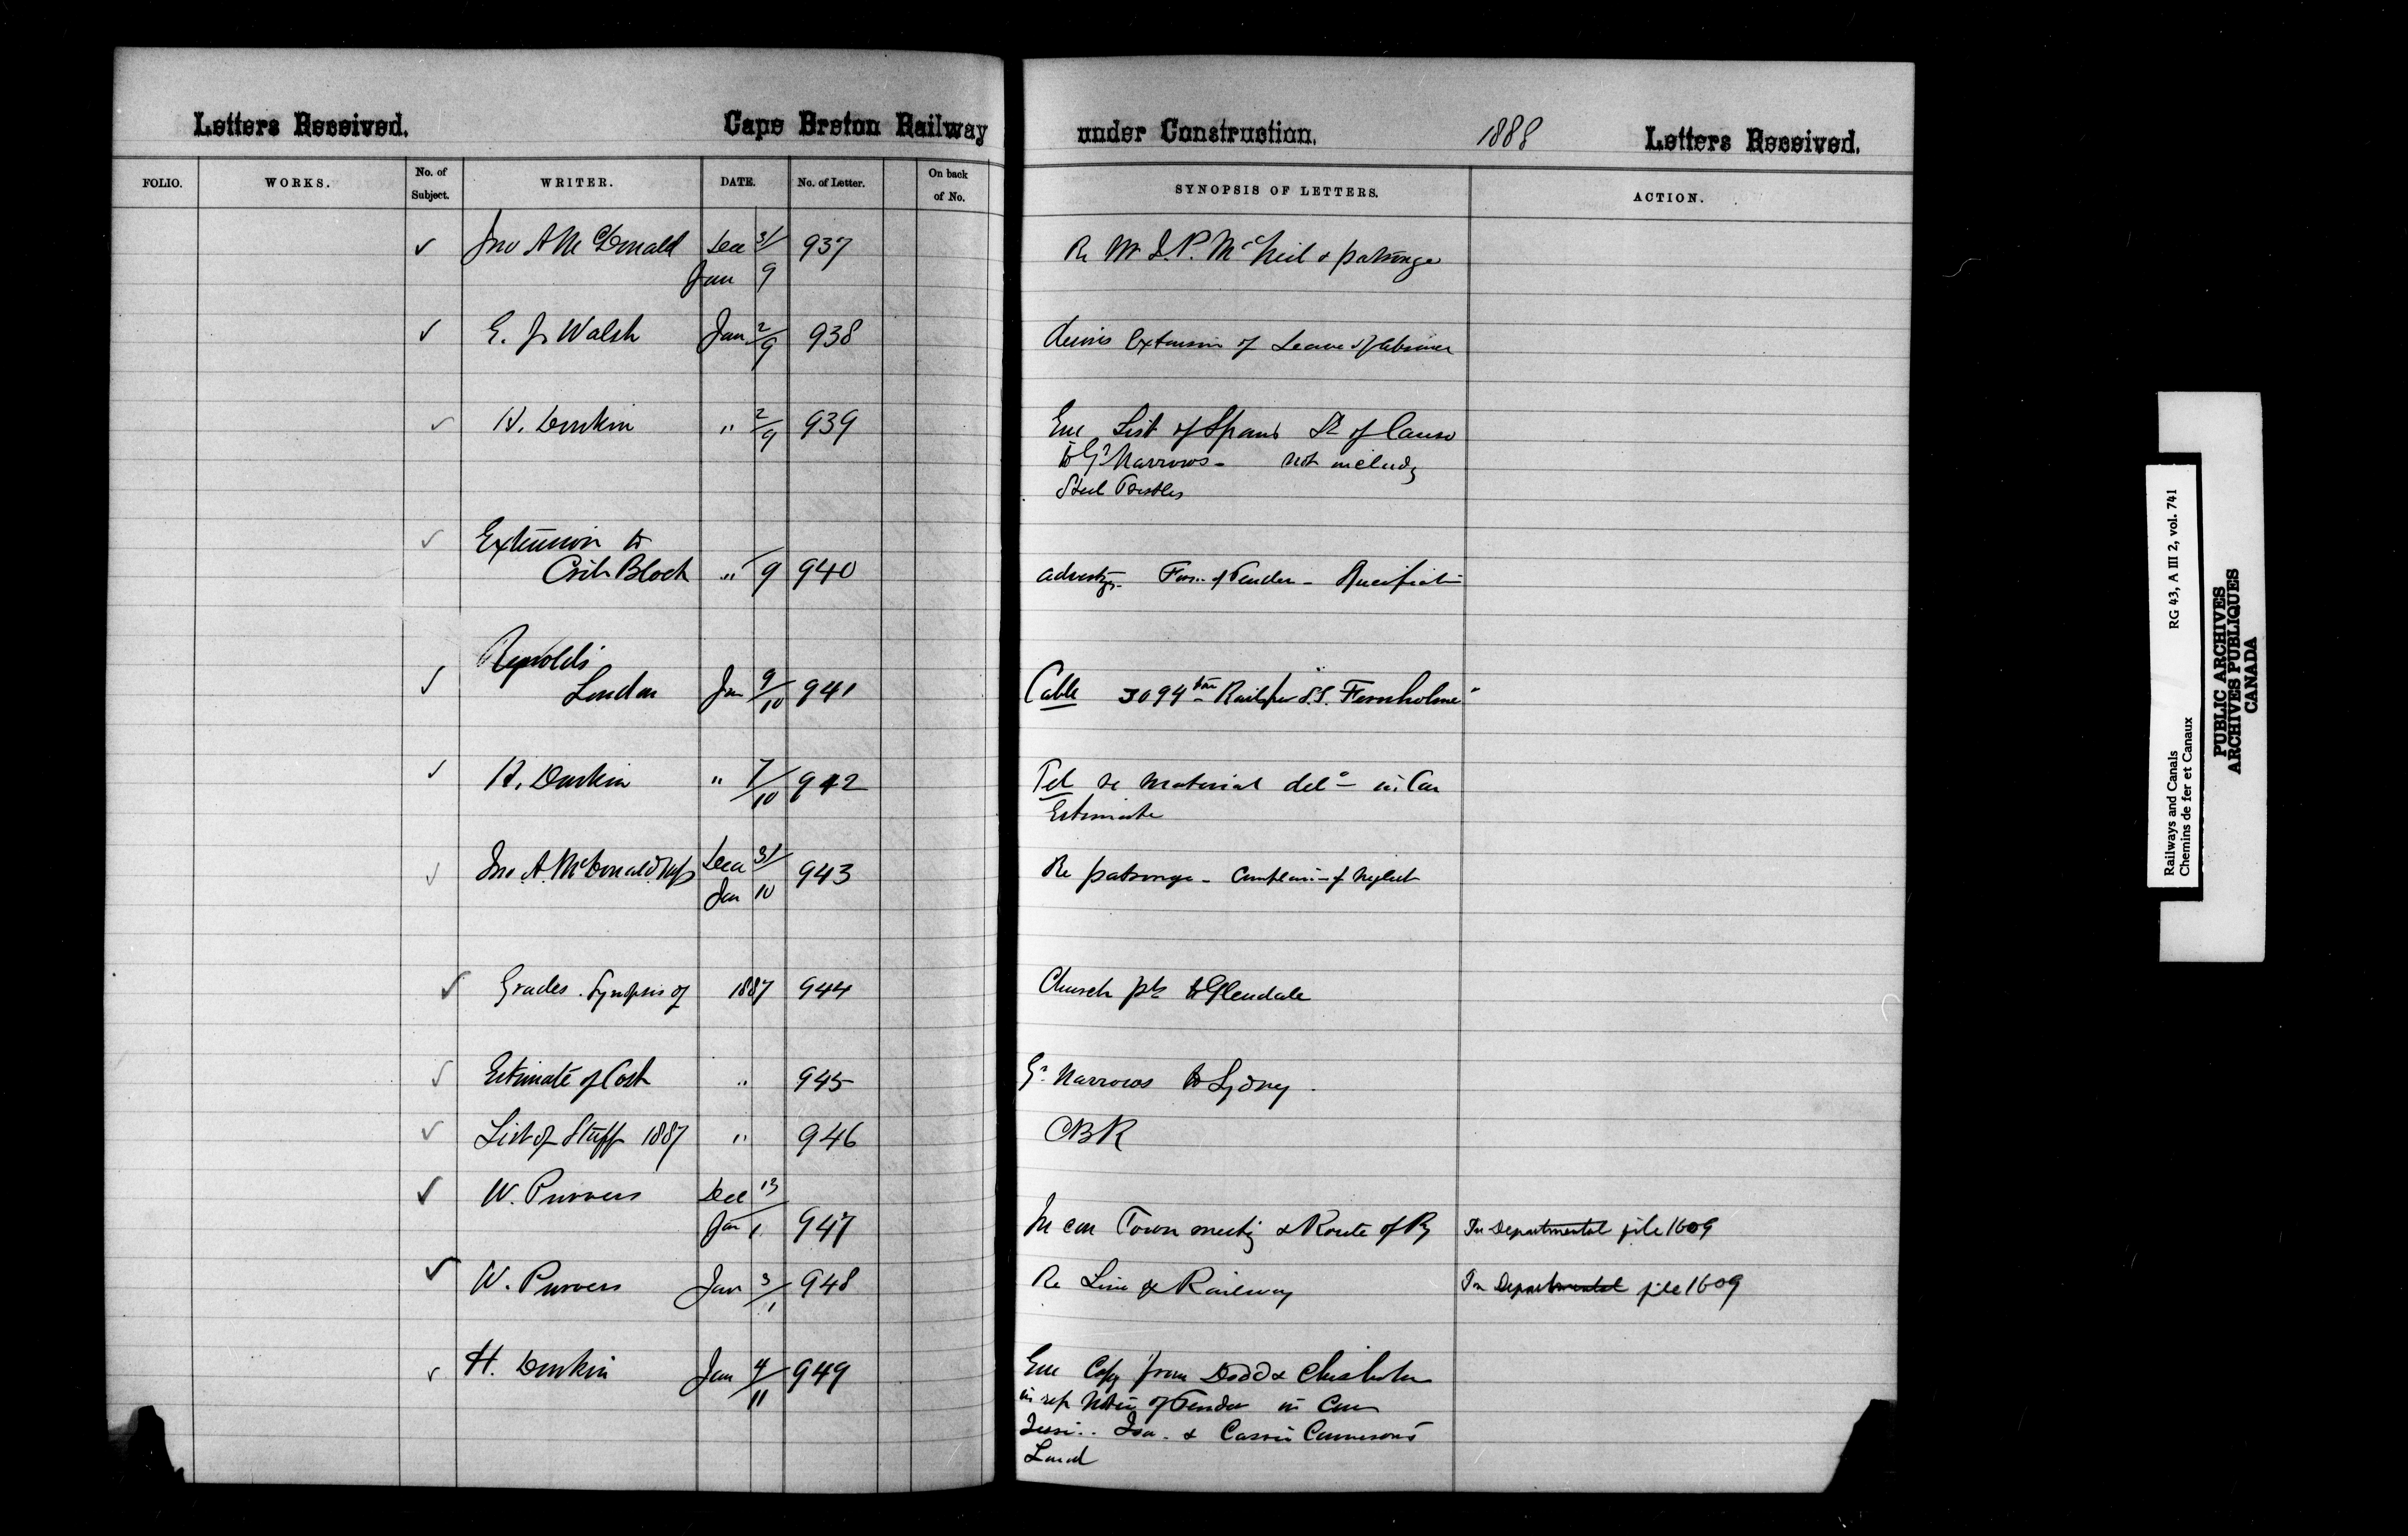 Letters Received. Cape Breton Railway under Construction. 1888 Letters Received.
FOLIO. WORKS. No. of Subject. WRITER. DATE. No. of Letter. On back of No. SYNOPSIS OF LETTERS. ACTION.
✓ Jno A McDonald Dec 31/ 937 Re Mr J.P. McNeil & patronge
Jan 9
✓ E. J. Walsh Jan 2/9 938 desires Extension of Leave of absence
✓ H. Donkin " 2/9 939 Enc List of Spans St of Canso
to Gd Narrows - not includg
Steel Trestles
✓ Extension to
Crib Block " 9 940 advertg. Form of Tender - Specificati
Reynolds
✓ London Jan 9/10 941 Cable 3094 ton Rails per S.S. "Fernholme"
✓ H. Donkin " 7/10 942 Tel re material deld in Can
Estimate
✓ Jno A. McDonald MP Dec 31/ 943 Re patronge - Complain of Neglect
Jan 10
✓ Grades. Synopsis of 1887 944 Church pt to Glendale
✓ Estimate of Cost " 945 Gd Narrows to Sydney.
✓ List of Staff 1887 " 946 CBR
✓ W. Purves Dec 13
Jan 1 947 In con Town meetig & Route of Ry In Departmental file 1609
✓ W. Purves Jan 3/1 948 Re Line of Railway In Departmental file 1609
✓ H. Donkin Jan 4/11 949 Enc Copy from Dodd & Chisholm
in rep Notice of Tender in
Isa. & Cassie Cameron's
Land
Railways and Canals RG 43, A III 2, vol. 741
Chemins de fer et Canaux
PUBLIC ARCHIVES
ARCHIVES PUBLIQUES
CANADA